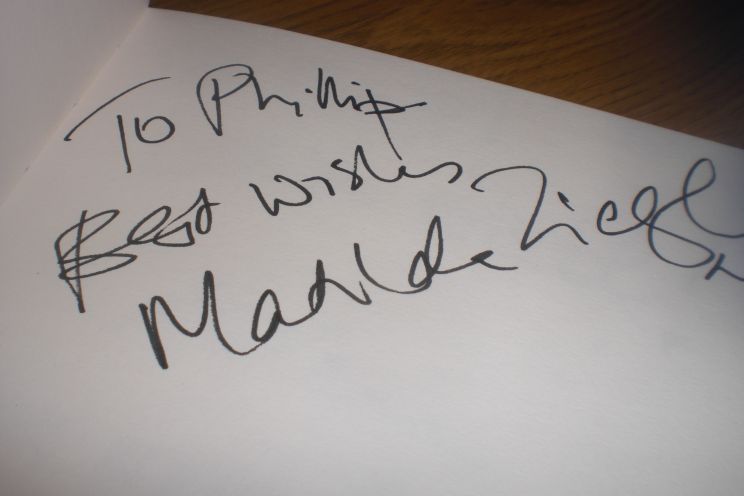 To Phillip
Best Wishes
Matilda Ziegler